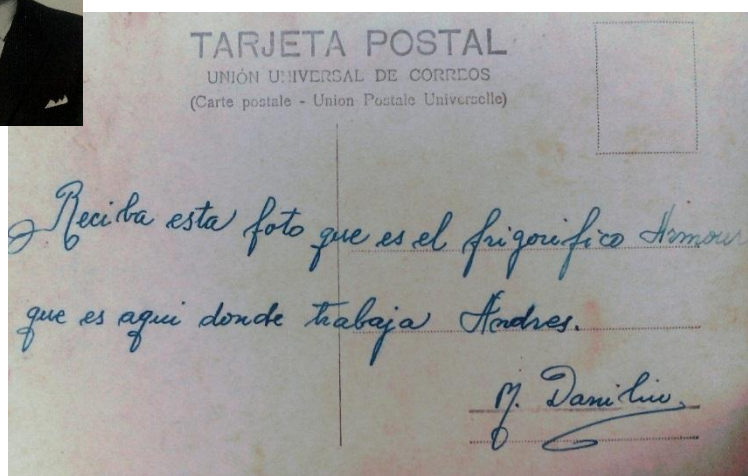 TARJETA POSTAL
UNIÓN UNIVERSAL DE CORREOS
(Carte postale - Union Postale Universelle)
Reciba esta foto que es el frigorifico Armour
que es aqui donde trabaja Andres.
M. Danilin